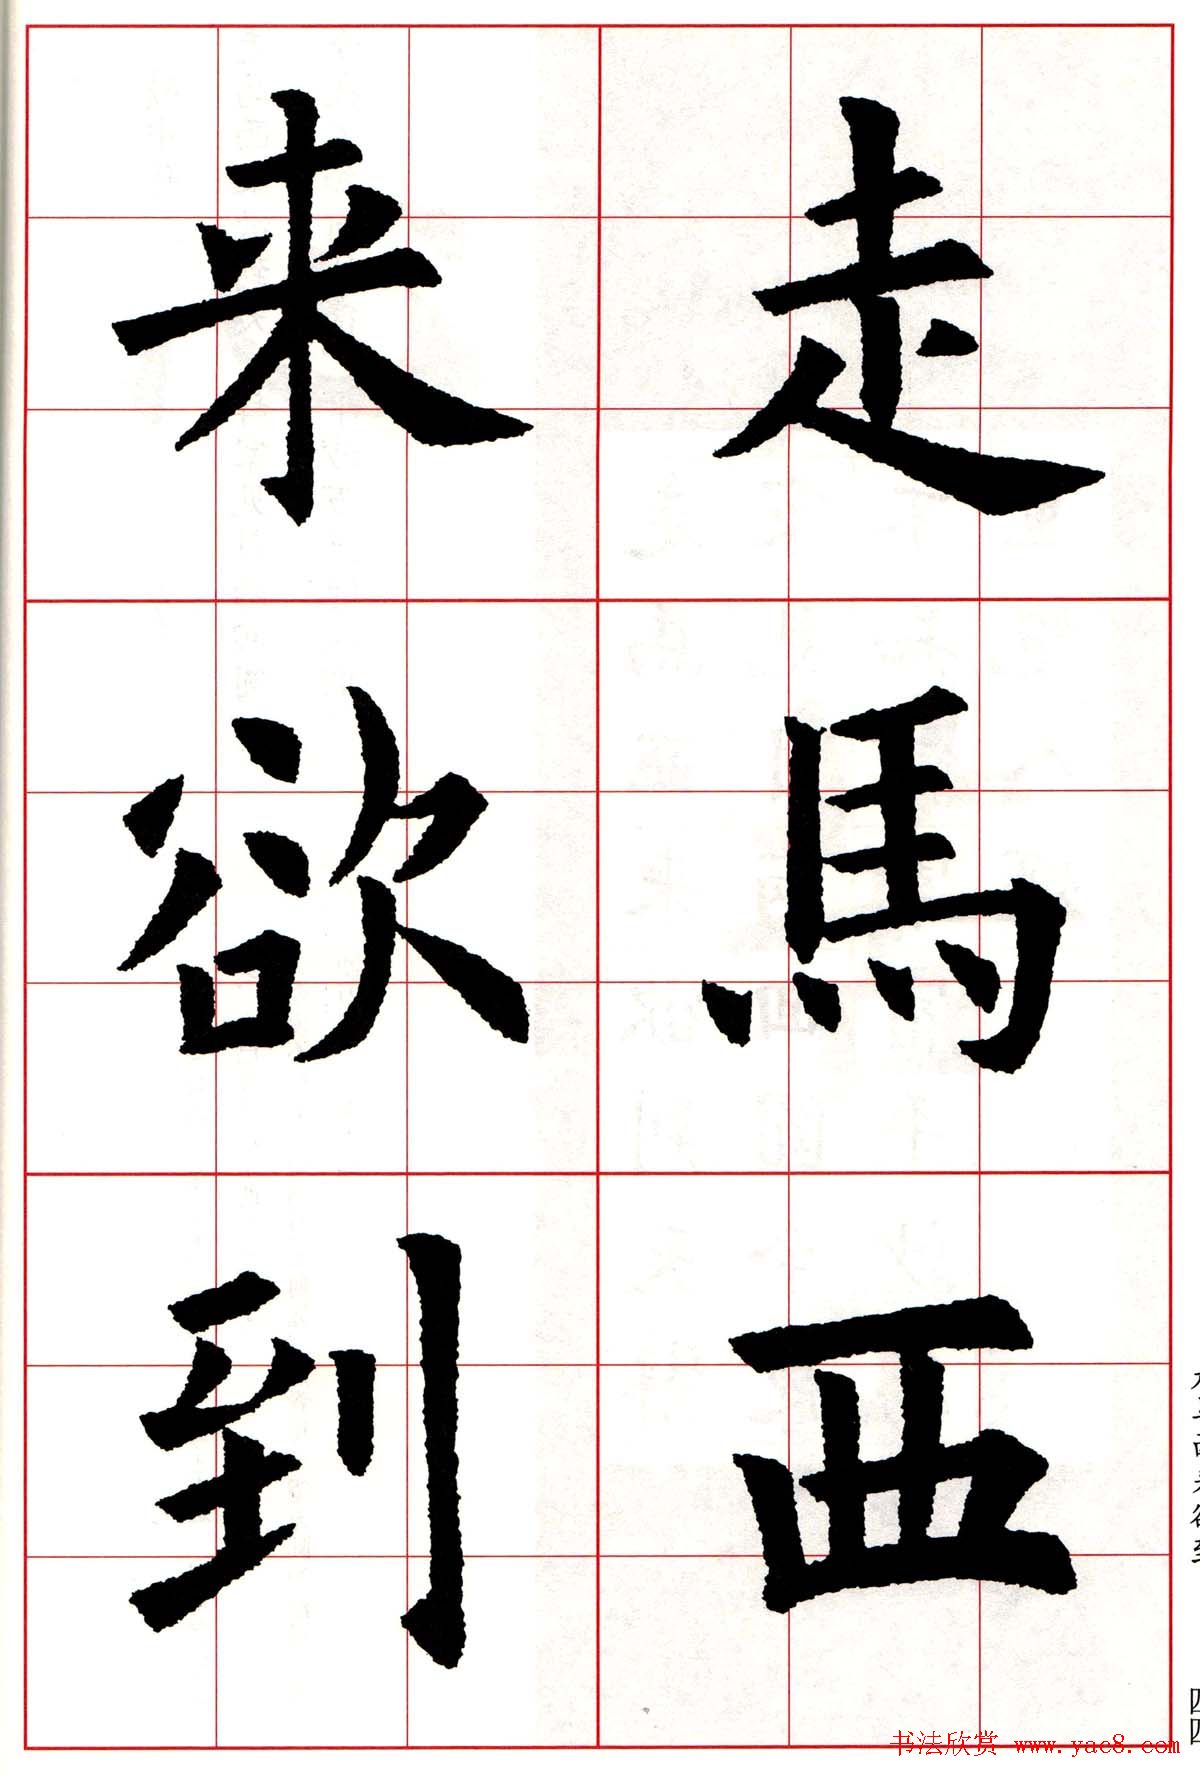 走馬西
来欲到
四四
书法欣赏 www.yac8.com